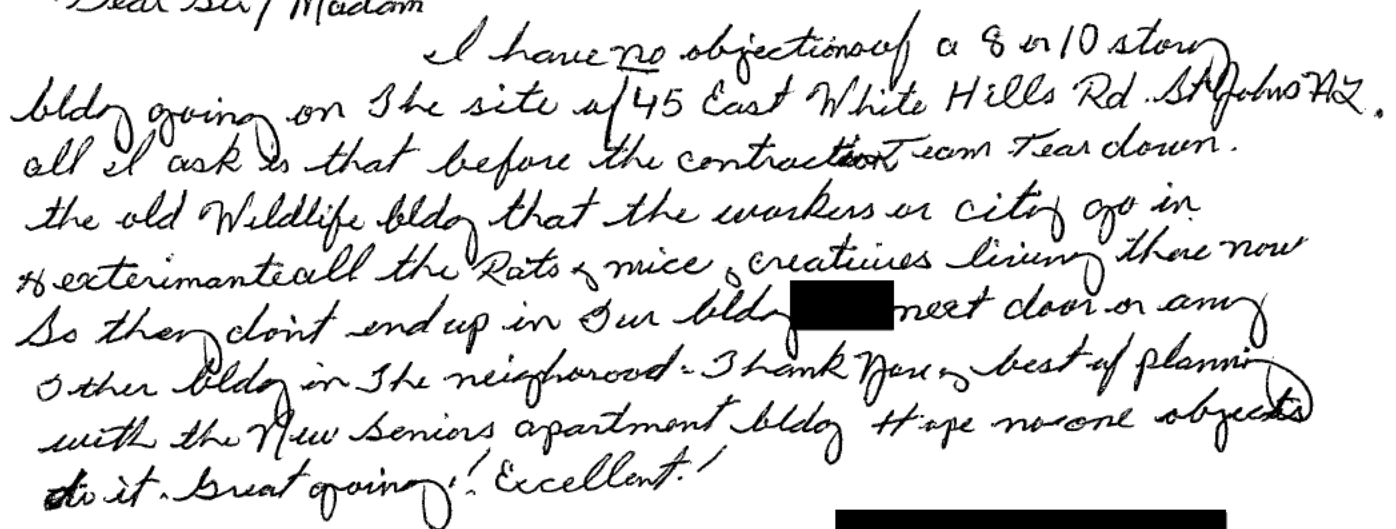 Dear Sir / Madam
I have no objections of a 8 or 10 story
bldg going on The site of 45 East White Hills Rd. St Johns NL.
all I ask is that before the contraction Team Tear down.
the old Wildlife bldg that the workers or city go in
& exterimante all the Rats & mice & creatures living there now
So they don't end up in Our bldg next door or any
Other bldg in The neighorood - Thank You & best of planning
with the New Seniors apartment bldg Hope no one objects
to it. Great going! Excellent!